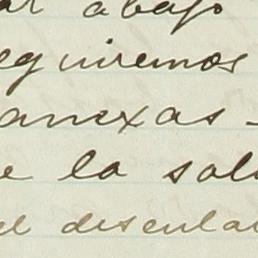 abajo
eguiremos
anexas -
e la sal
el desenla